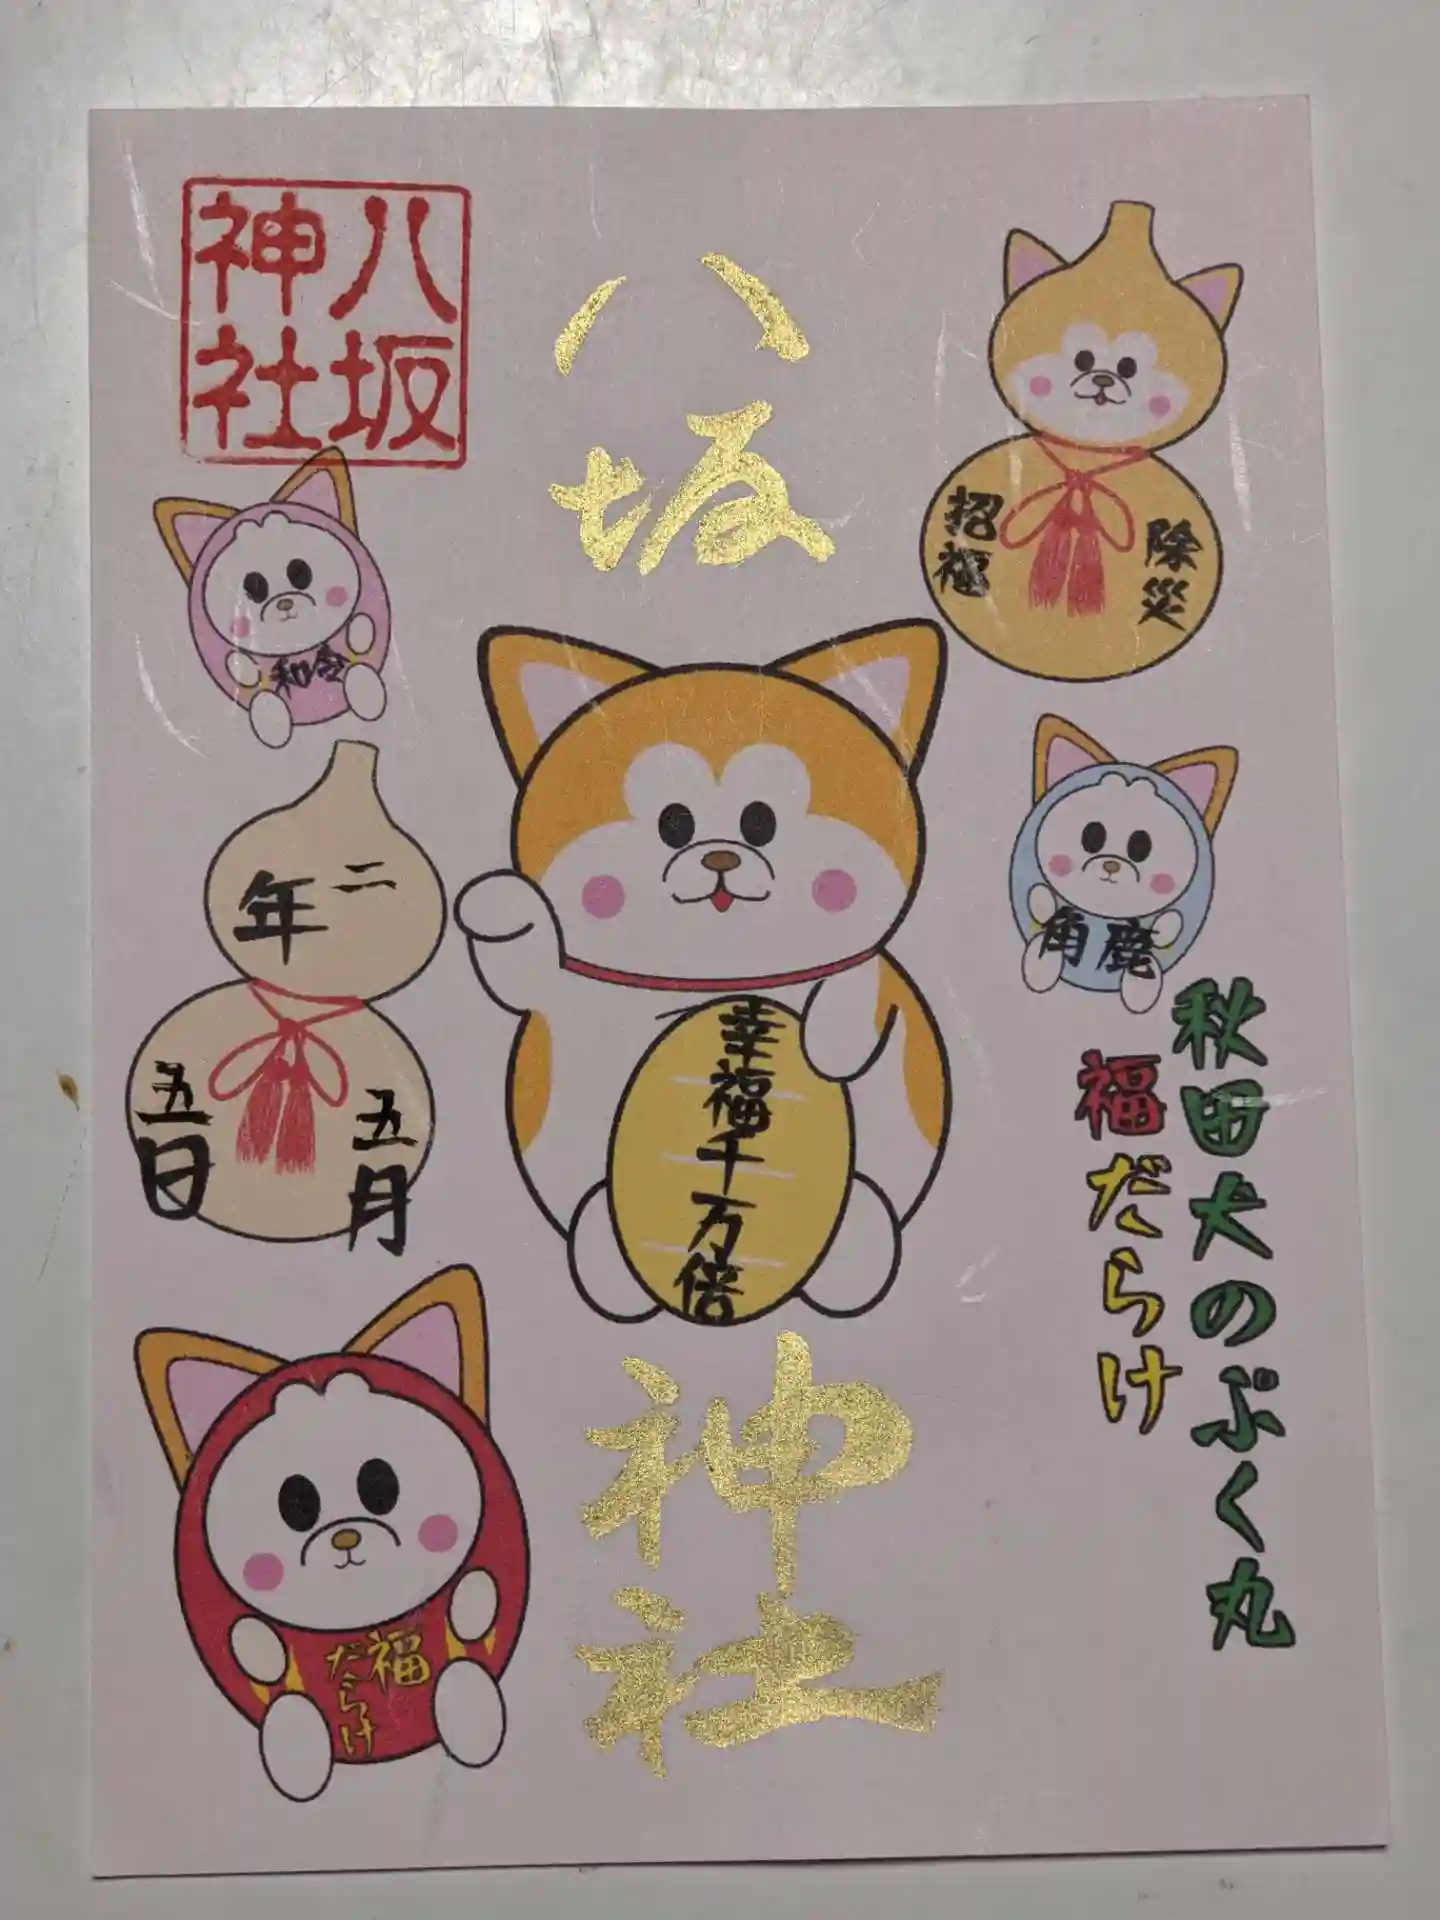 八坂
神社
八坂
神社
除災
招福
令和
二
年
五月
五日
鹿
角
幸福千万倍
秋田犬のぷく丸
福だらけ
福
だらけ